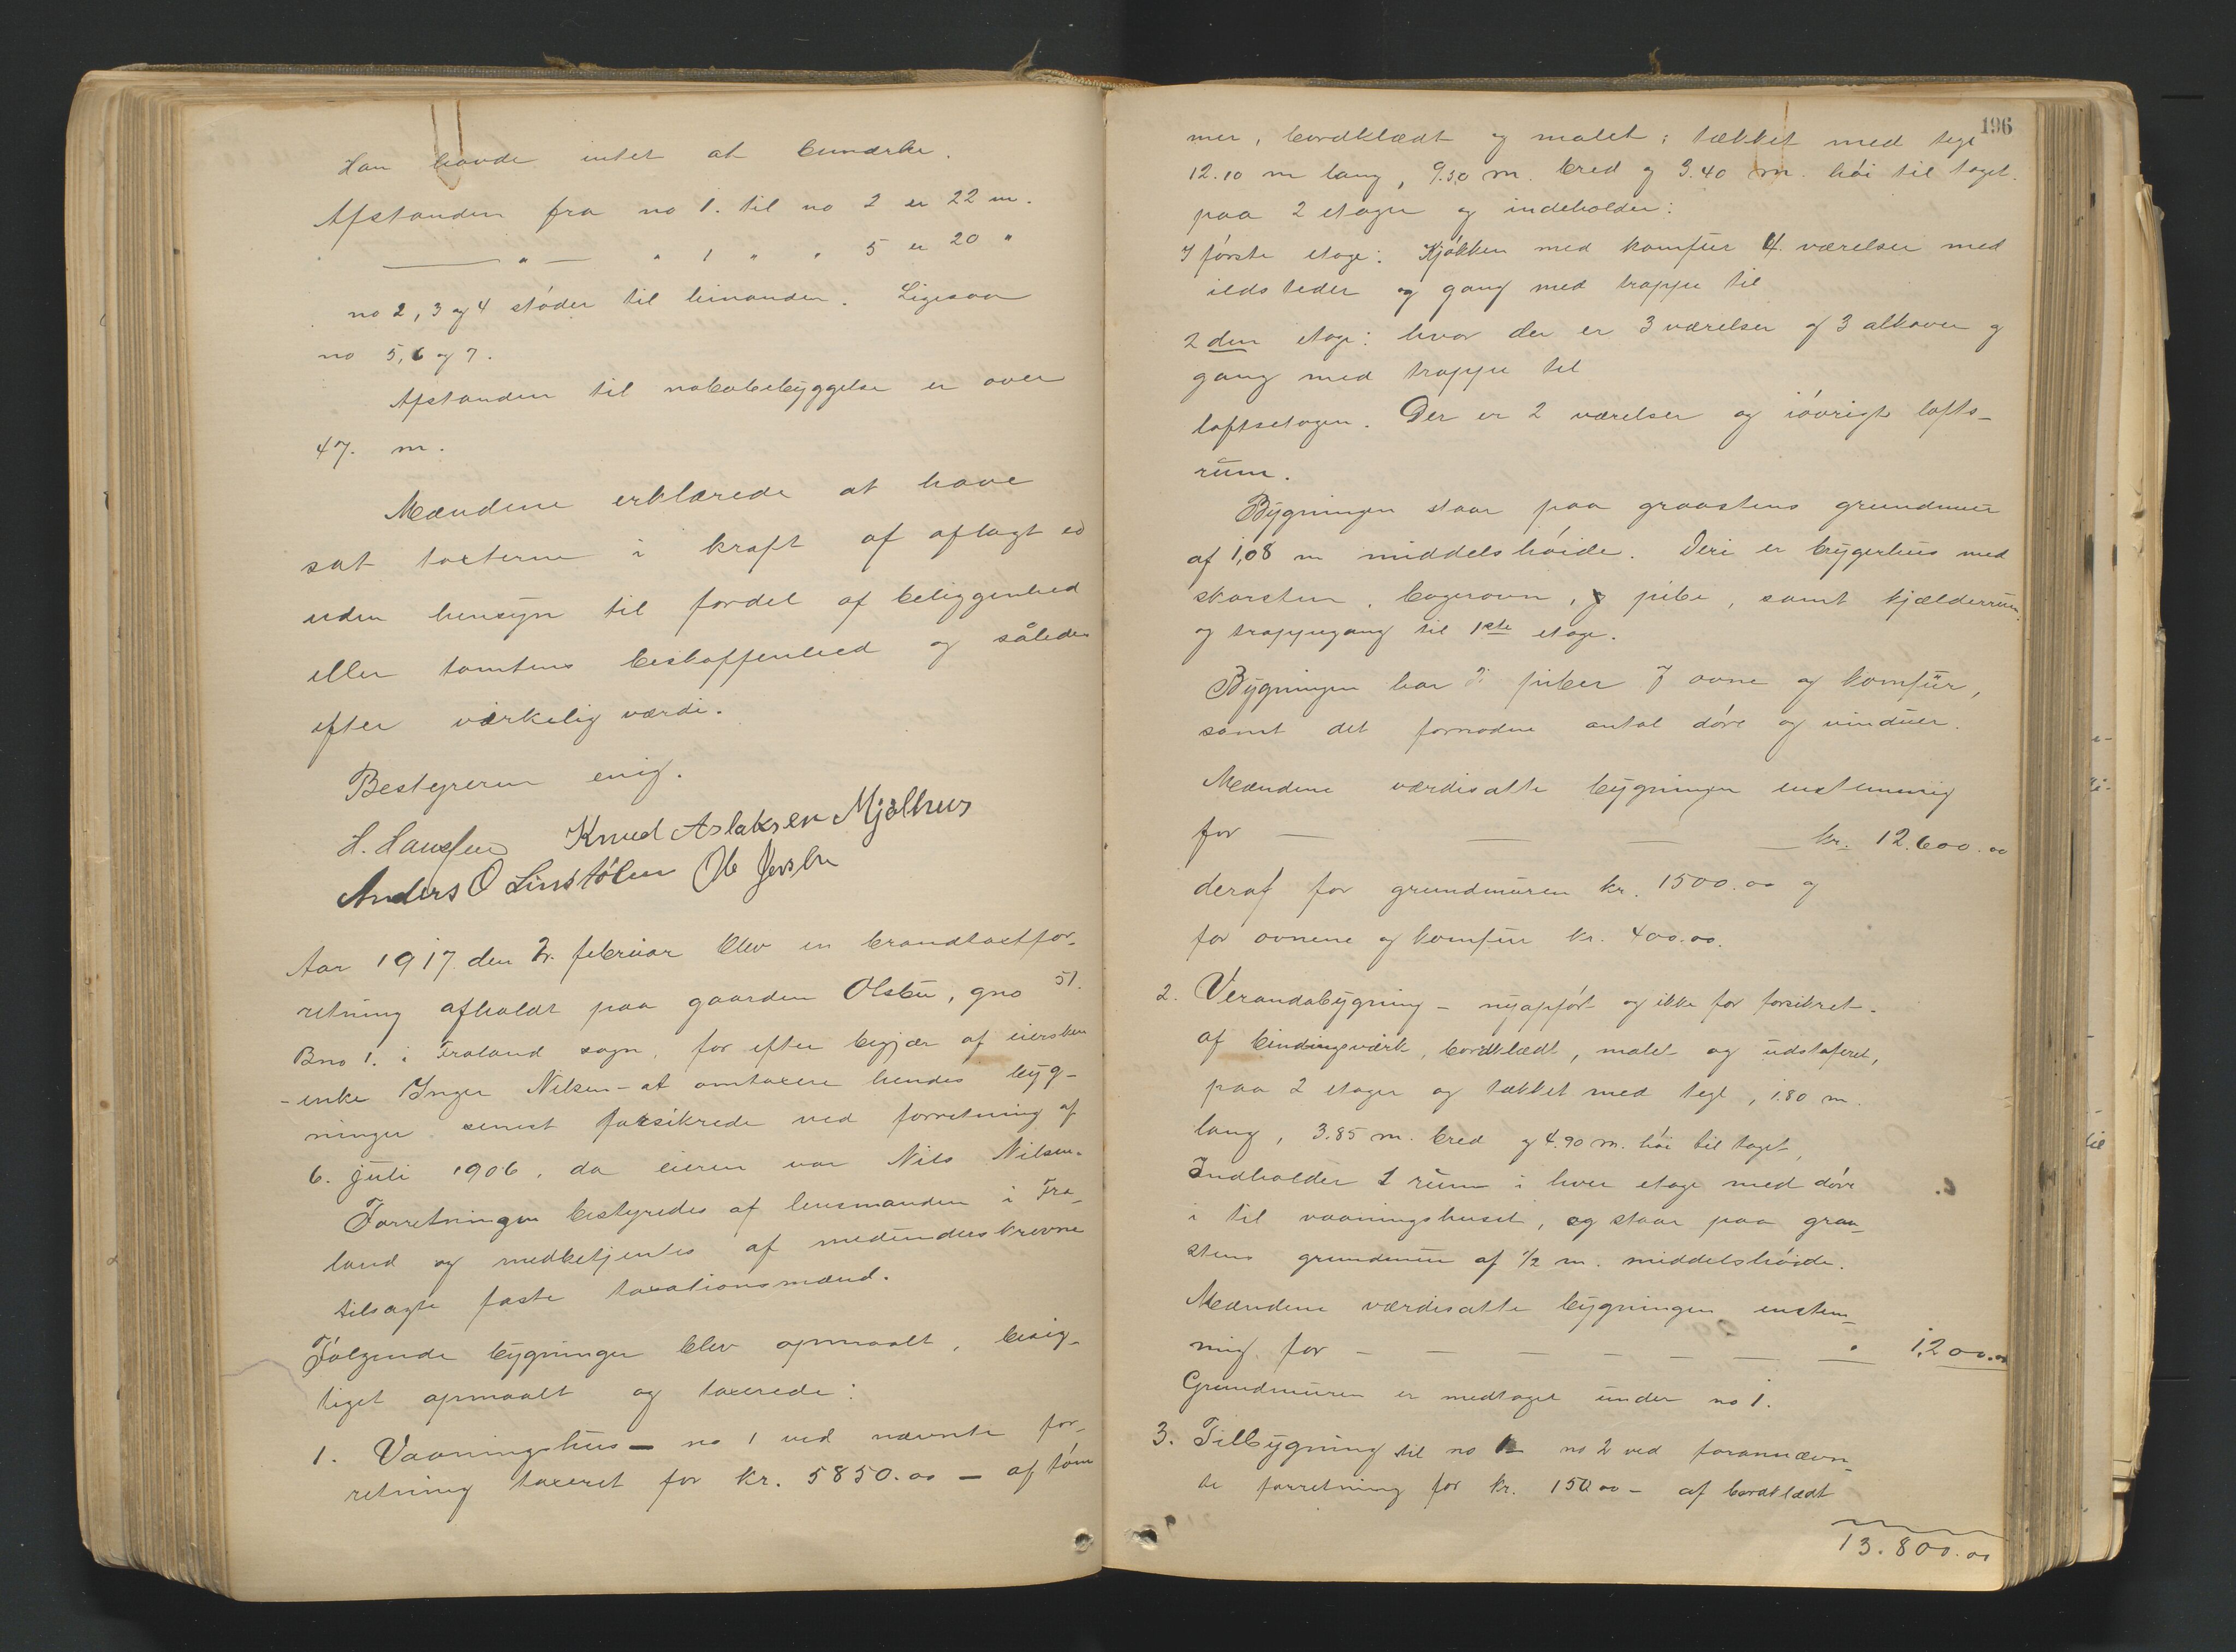 Han havde intet at bemærke.
Afstanden fra no 1. til no 2 er 22 m.
" — " — " 1 " " 5 er 20 "
no 2, 3 og 4 støder til hinanden. Ligesaa
no 5, 6 og 7.
Afstanden til nabobebyggelse er over
47. m.
Mændene erklærede at have
sat taxterne i kraft af aflagt ed
uden hensyn til fordel af beliggenhed
eller tomtens beskaffenhed og således
efter virkelig værdi.
Bestyreren enig.
H. Hanssen Knud Aslaksen Mjålhus
Anders O Linstølen Ole
Aar 1917 den 2. februar blev en brandtaxtfor-
retning afholdt paa gaarden Olsbu, gno 51.
Bno 1. i Froland sogn, for efter begjær af eiersken
- enke Inger Nilsen - at omtaxere hendes byg-
ninger senest forsikrede ved forretning af
6. juli 1906, da eieren var Nils Nilsen.
Forretningen bestyredes af lensmanden i Fro-
land og medbetjentes af medunderskrevne
tilsagte faste taxationsmænd.
Følgende bygninger blev opmaalt, besig-
tiget opmaalt og taxerede:
1. Vaaningshus — no 1 ved nævnte for-
retning taxeret for kr. 5850.00 — af tøm
196
mer, bordklædt og malet; tækket med tegl
12.10 m lang, 9.30 m. bred og 3.40 m. høi til taget.
paa 2 etager og indeholder:
I første etage: Kjøkken med komfur 4. værelser med
ildsteder og gang med trappe til
2den etage: hvor der er 3 værelser og 3 alkover og
gang med trappe til
loftsetagen. Der er 2 værelser og iøvrigt lofts-
rum.
Bygningen staar paa graastens grundmur
af 1,08 m middelshøide. Deri er brygerhus med
skorsten, bagerovn, og pibe, samt kjælderrum
og trappegang til 1ste etage.
Bygningen har 2 piber 7 ovne og komfur,
samt det fornødne antal døre og vinduer.
Mændene værdisatte bygningen enstemmig
for — — — — kr. 12.600.00
deraf for grundmuren kr. 1500.00 og
for ovnene og komfur kr. 400.00.
2. Verandabygning — nyopført og ikke før forsikret -
af bindingsværk, bordklædt, malet og udstaferet,
paa 2 etager og tækket med tegl, 1.80 m.
lang, 3.85 m. bred og 4.90 m. høi til taget,
Indholder 1 rum i hver etage med døre
i til vaaningshuset, og staar paa graa-
stens grundmur af 1/2 m. middelshøide.
Mændene værdisatte bygningen enstem-
mig for — — — — — — " 1,200.00
Grundmuren er medtaget under no 1.
3. Tilbygning til no 1 — no 2 ved forannævn-
te forretning for kr. 150.00 — af bordklædt
13.800.00